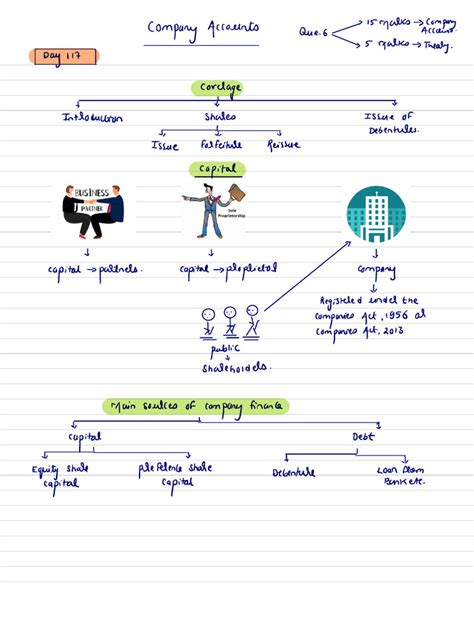 Company Accounts
Que. 6
15 marks → Company Account.
5 marks → Theory.
Day 117
Corelage
Introduction
Shares
Issue of Debentures.
Issue
Forfeiture
Reissue
Capital
BUSINESS
PARTNER
Sole
Proprietorship
capital → partners.
capital → proprietor
company
Registered under the
companies Act, 1956 or
companies Act, 2013
public
shareholders.
Main sources of company finance
capital
Debt
Equity share
capital
preference share
capital
Debenture
Loan from
Bank etc.